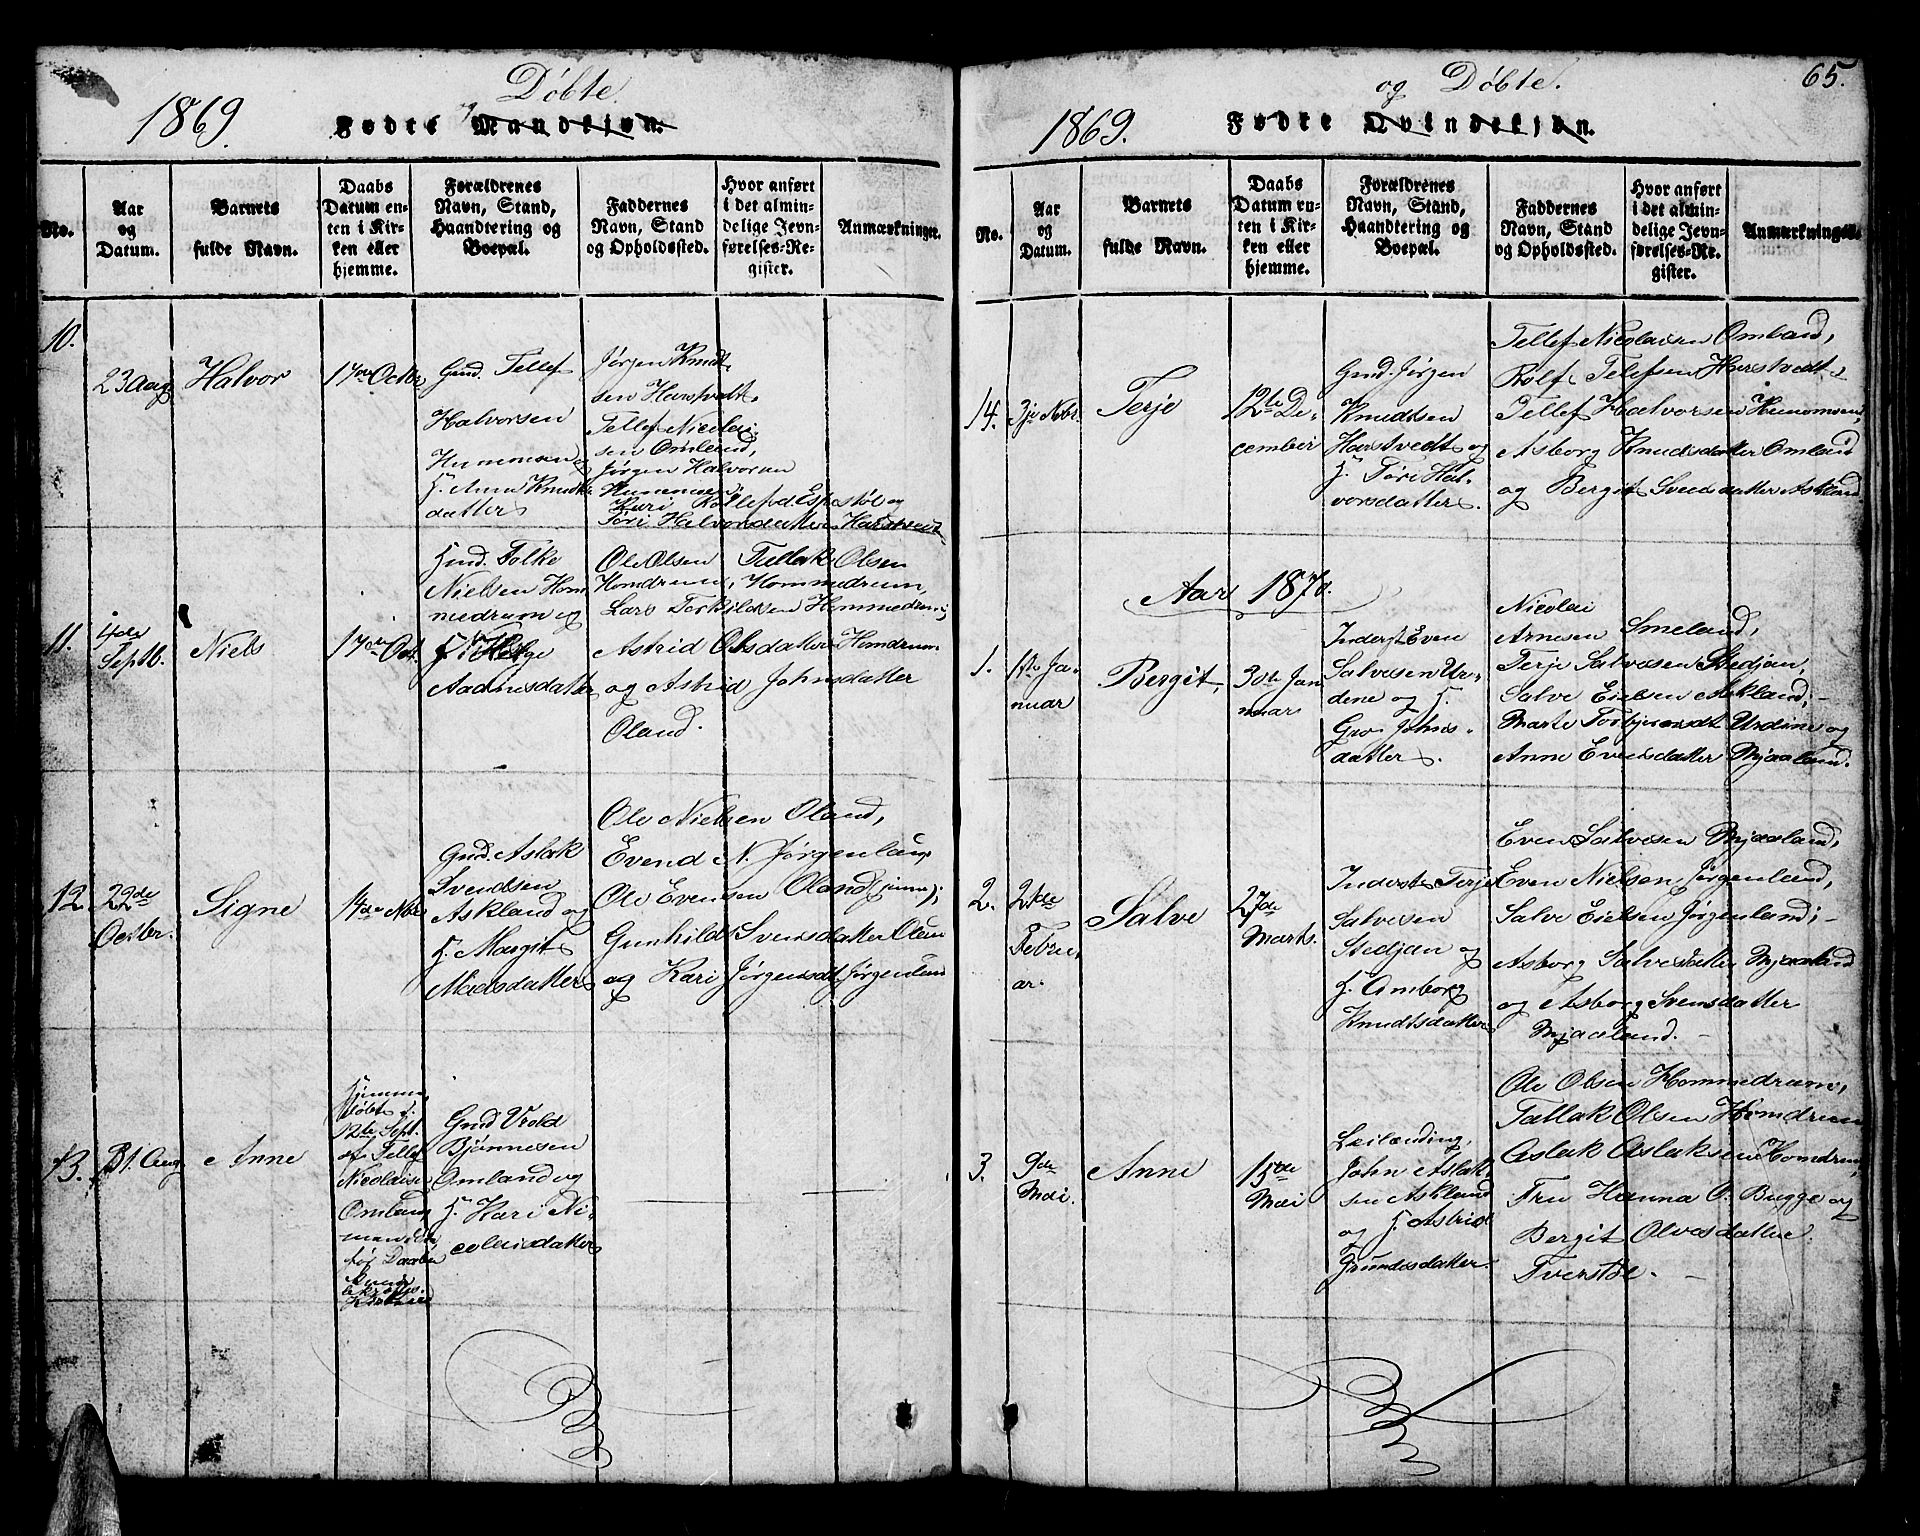 1869.
og Døbte.
Fødte Mandkjøn.
No.
Aar
og
Datum.
Barnets
fulde Navn.
Daabs
Datum en-
ten i Kir-
ken eller
hjemme.
Forældrenes
Navn, Stand,
Haandtering og
Boepæl.
Faddernes
Navn, Stand
og Opholdssted.
Hvor anført
i det almin-
delige Jevn-
førelses-Re-
gister.
Anmærkninger.
10.
23 Aug
Halvor
17de Octbr
Gmd. Tellef
Halvorsen
Hummen og
H. Anne Knuds
datter
Jørgen Knudt
sen Harstvedt,
Tellef Nicolai
sen Omland,
Jørgen Halvorsen
Kari Rollefsd. Espestøl og
Tøri Halvorsdatter Harstvedt
11.
4de
Septb.
Niels
17de Oct.
Gmd. Folke
Nielsen Hom
medrum og
H. Helge
Aadnesdatter
Ole Olsen Tallak Olsen
Homdrum, Hommedrum,
Lars Terkildsen Hommedrum;
Astrid Olsdatter Homdrum
og Astrid Johnsdatter
Oland.
12
22de
Octbr.
Signe
14de Nobr
Gmd. Aslak
Svendsen
Askland og
H. Margit
Madsdatter
Ole Nielsen Oland,
Evend N. Jørgenlan
Ole Evensen Oland (junr);
Gunhild Svensdatter Olan
og Kari Jørgensdt. Jørgenlan
13.
31. Aug
Anne
Hjemme
døbt d.
12te Sept.
af Tellef
Nicolaise
Omland
men
før Daaben
Gmd Vrold
Bjønnesen
Omland og
H. Kari Ni-
colaisdatter
65.
1869.
og Døbte.
Fødte Qvindekjøn.
No.
Aar
og
Datum.
Barnets
fulde Navn.
Daabs
Datum en-
ten i Kir-
ken eller
hjemme.
Forældrenes
Navn, Stand,
Haandtering og
Boepæl.
Faddernes
Navn, Stand
og Opholdssted.
Hvor anført
i det almin-
delige Jevn-
førelses-Re-
gister.
Anmærkninger.
14.
3je Nobr
Terje
12te De-
cember
Gmd. Jørgen
Knudsen
Harstvedt og
H. Tøri Hal-
vorsdatter.
Tellef Nicolaisen Omland,
Rolf Tellefsen Harstvedt
Tellef Halvorsen
Asborg Knudsdatter Omland
og Bergit Svensdatter Askland
Aar 1870.
1.
1ste Ja-
nuar
Bergit,
30te Jan
uar
Inderst Even
Salvesen Ur-
dene og H.
Gro Johns-
datter.
Nicolai
Arnesen Smeland,
Terje Salvesen Stedjan,
Salve Eielsen Askland;
Marte Torbjørnsdt Urdene og
Anne Evensdatter Mjaaland.
2.
21de
Febru-
ar.
Salve
27de
Marts.
Inderst Terje
Salvesen
Stedjan og
H. Amborg
Knudtsdatter
Even Salvesen Mjaaland,
Even Nielsen Jørgenland,
Salve Eielsen Jørgenland;
Asborg Salvesdatter Mjaaland
og Asborg Svensdatter
Mjaaland.
3.
9de
Mai.
Anne
15de
Mai
Leilænding,
John Aslak
sen Askland
og H. Astrid
Gundersdatter.
Ole Olsen Hommedrum,
Tallak Olsen Homdrum
Aslak Aslaksen Homdrum,
Fru Hanna O. Bugge og
Bergit Olvesdatter
Tverstøl.